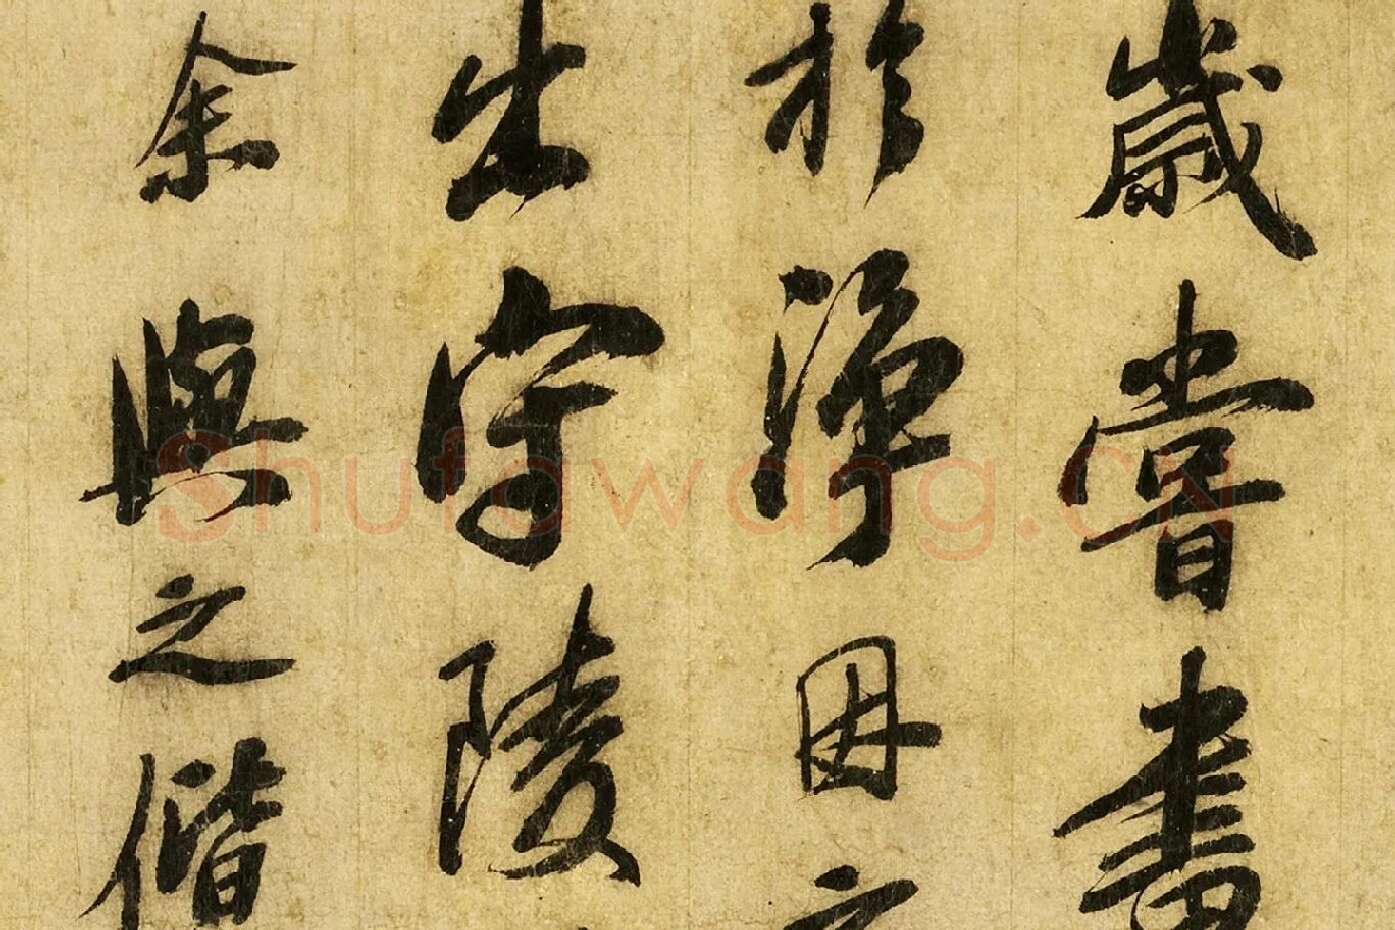 歲嘗畫
於淨因之
出守陵
余與之偕
Shufawang.cn